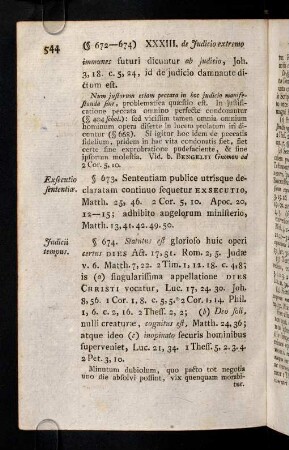 544 (§ 672—674) XXXIII. de Judicio extremo
immunes futuri dicuntur ab judicio, Joh.
3, 18. c. 5, 24, id de judicio damnante di-
ctum est.
Num justorum etiam peccata in hoc judicio manife-
standa sint, problematica quæstio est. In justifi-
catione peccata omnino perfecte condonantur
(§ 404 schol.) sed vicissim tamen omnia omnium
hominum opera diserte in lucem prolatum iri di-
cuntur (§ 668). Si igitur hoc idem de peccatis
fidelium, pridem in hac vita condonatis fiet, fiet
certe sine exprobratione pudefaciente, & sine
ipsorum molestia. Vid. b. BENGELII Gnomon ad
2 Cor. 5, 10.
Exsecutio
sententiæ.
§ 673. Sententiam publice utrisque de-
claratam continuo sequetur EXSECUTIO,
Matth. 25, 46. 2 Cor. 5, 10. Apoc. 20,
12—15; adhibito angelorum ministerio,
Matth. 13, 41. 42. 49. 50.
Judicii
tempus.
§ 674. Statutus est glorioso huic operi
certus DIES Act. 17, 51. Rom. 2, 5. Judæ
v. 6. Matth. 7, 22. 2 Tim. 1, 12. 18. c. 4, 8;
is (a) singularissima appellatione DIES
CHRISTI vocatur, Luc. 17, 24. 30. Joh.
8, 56. 1 Cor. 1, 8. c. 5, 5. 2 Cor. 1, 14. Phil.
1, 6. c. 2, 16. 2 Thess. 2, 2; (b) Deo soli,
nulli creaturæ, cognitus est, Matth. 24, 36;
atque ideo (c) inopinato securis hominibus
superveniet, Luc. 21, 34. 1 Thess. 5, 2. 3. 4.
2 Pet. 3, 10.
Minutum dubiolum, quo pacto tot negotia
uno die absolvi possint, vix quenquam morabi-
tur.